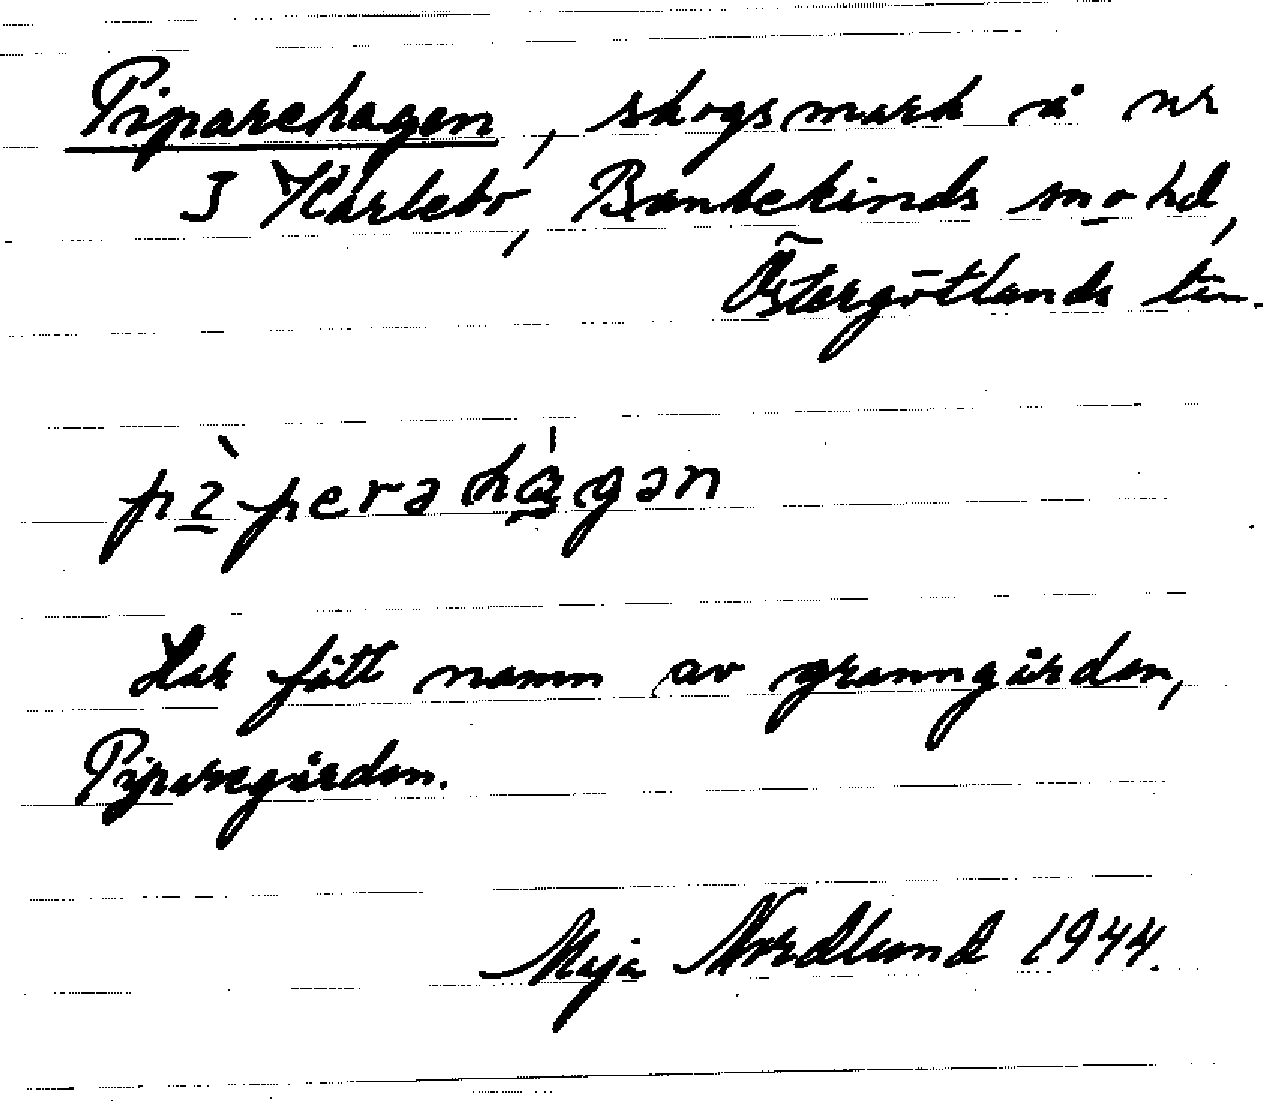 Piparehagen, skogsmark å nr
3 Karlebo, Bankekinds sn o hd,
Östergötlands län.
pìperahágan
Har fått namn av granngården,
Piparegården.
Maja Nordlund 1944.